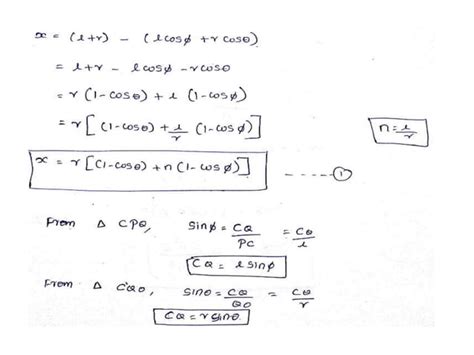 x = (l+r) - (l cosø + r cosθ)
= l+r - l cosø - r cosθ
= r (1-cosθ) + l (1-cosø)
= r [ (1-cosθ) + l/r (1-cosø) ]
n = l/r
x = r [(1-cosθ) + n (1-cosø)] ----- ①
From Δ CPQ, sinø = CQ/PC = CQ/l
CQ = l sinø
From Δ CQO, sinθ = CQ/QO = CQ/r
CQ = r sinθ.